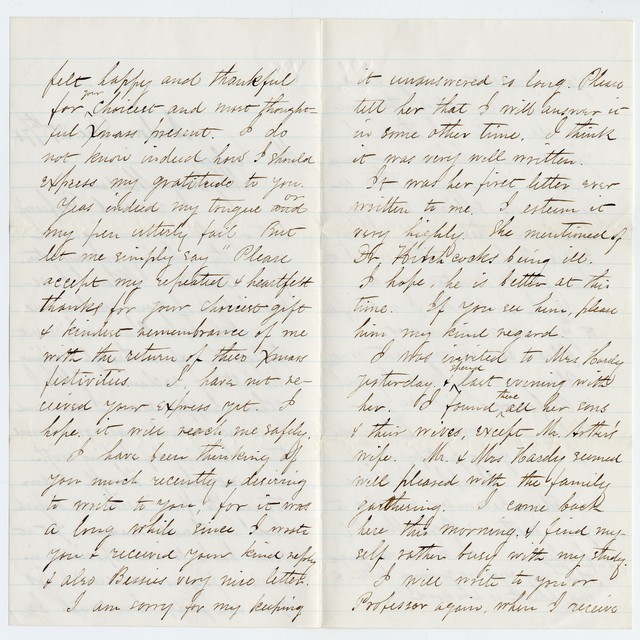 felt happy and thankful
for your choicest and most thought-
ful Xmass present. I do
not know indeed how I should
express my gratitude to you.
Yeas indeed my tongue and or
my pen utterly fail But
let me simply say "Please
accept my repeated & heartfelt
thanks for your choicest gift
& kindest remembrance of me
with the return of these Xmass
festivities. I, have not re-
ceived your express yet. I
hope, it will reach me safely.
I have been thinking of
you much recently & desiring
to write to you, for it was
a long while since I wrote
you & received your kind reply
& also Bessies very nice letter.
I am sorry for my keeping
it unanswered so long. Please
tell her that I will answer it
in some other time. I think
it was very well written.
It was her first letter ever
written to me. I esteem it
very highly. She mentioned of
Dr. Hitchcocks being ill.
I hope, he is better at this
time. If you see him, please
him my kind regard.
I was invited to Mrs Hardy
yesterday, & spend last evening with
her. I found there all her sons
& their wives, except Mr. Arthur's
wife. Mr. & Mrs Hardy seemed
well pleased with the family
gathering. I came back
here this morning, & find my-
self rather busy with my study.
I will write to you or
Professor again, when I receive